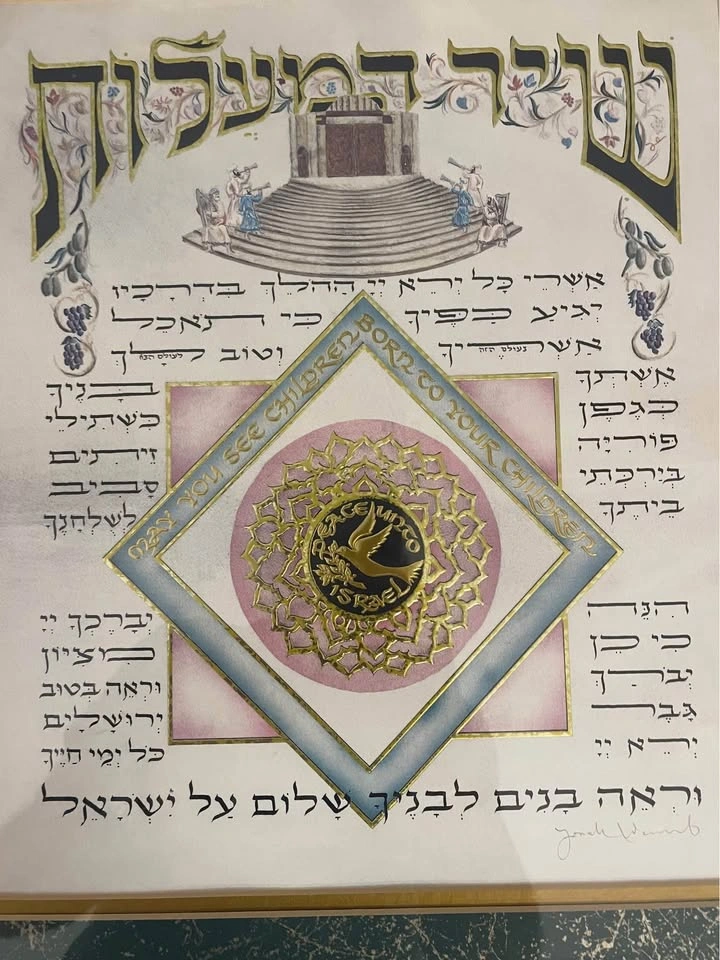 שִׁיר הַמַּעֲלוֹת
אַשְׁרֵי כָּל יְרֵא יְיָ הַהֹלֵךְ בִּדְרָכָיו
יְגִיעַ כַּפֶּיךָ כִּי תֹאכֵל
אַשְׁרֶיךָ בעולם הזה וְטוֹב לָךְ לעולם הבא
אֶשְׁתְּךָ
כְּגֶפֶן
פּוֹרִיָּה
בְּיַרְכְּתֵי
בֵיתֶךָ
בָּנֶיךָ
כִּשְׁתִילֵי
זֵיתִים
סָבִיב
לְשֻׁלְחָנֶךָ
MAY YOU SEE CHILDREN BORN TO YOUR CHILDREN
PEACE UNTO
ISRAEL
הִנֵּה
כִּי כֵן
יְבֹרַךְ
גָּבֶר
יְרֵא יְיָ
יְבָרֶכְךָ יְיָ
מִצִּיּוֹן
וּרְאֵה בְּטוּב
יְרוּשָׁלָיִם
כֹּל יְמֵי חַיֶּיךָ
וּרְאֵה בָנִים לְבָנֶיךָ שָׁלוֹם עַל יִשְׂרָאֵל